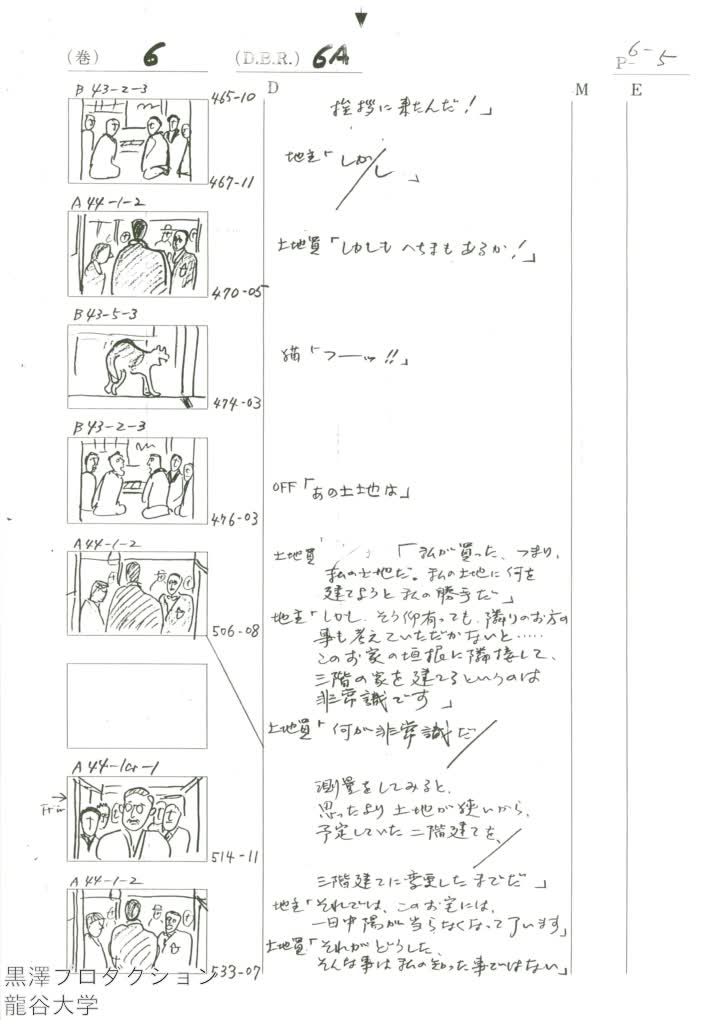 (巻) 6 (D.B.R.) 6A P- 6-5
D M E
B 43-2-3
465-10
挨拶に来たんだ！」
地主「しかし」
467-11
A 44-1-2
土地買「しかしも へちまもあるか！」
470-05
B 43-5-3
猫「フーッ!!」
474-03
B 43-2-3
OFF「あの土地は」
476-03
A 44-1-2
土地買「私が買った、つまり、
私の土地だ。私の土地に何を
建てようと私の勝手だ」
地主「しかし、そう仰有っても、隣りのお方の
506-08
事も考えていただかないと……
このお家の垣根に隣接して、
三階の家を建てるというのは
非常識です」
土地買「何が非常識だ
A 44-1cr-1
測量をしてみると、
Fr in
思ったより土地が狭いから、
予定していた二階建てを、
514-11
A 44-1-2
三階建てに変更したまでだ」
地主「それでは、このお宅には、
一日中陽が当らなくなって了います」
土地買「それがどうした、
533-07
そんな事は私の知った事ではない」
黒澤プロダクション
龍谷大学